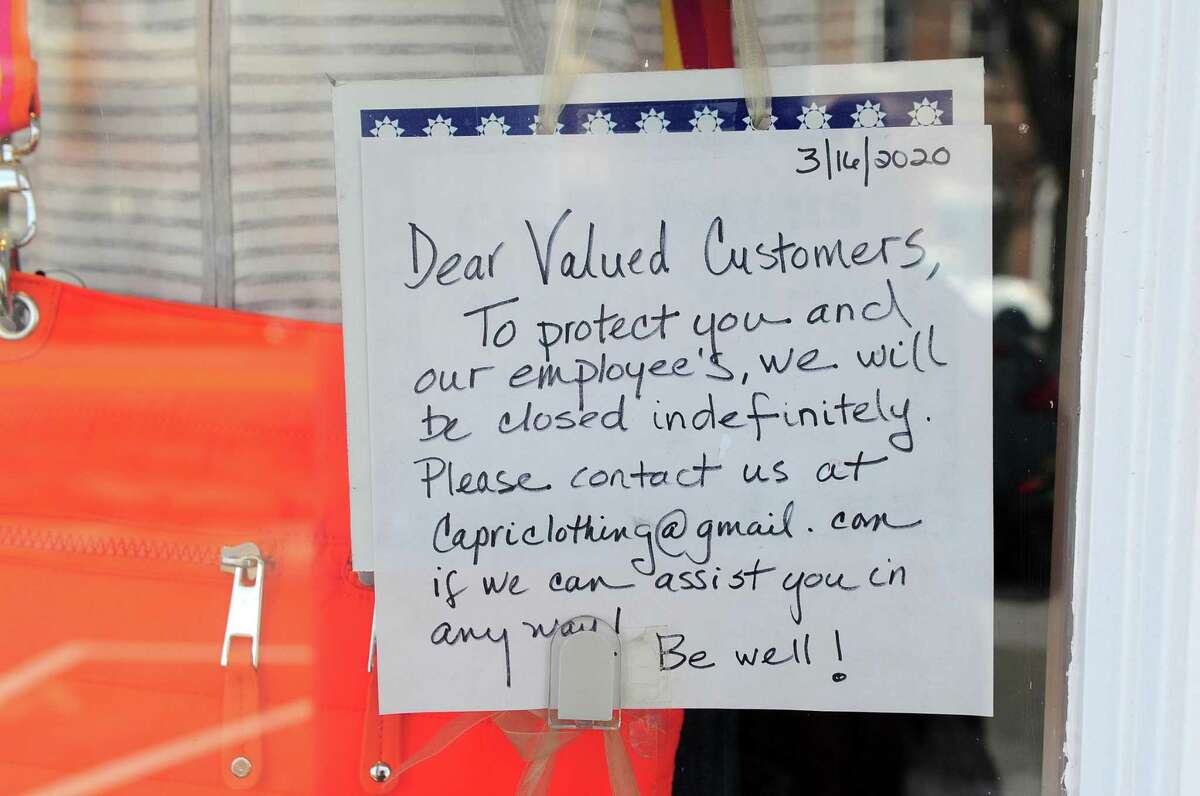 3/16/2020
Dear Valued Customers,
To protect you and
our employee's, we will
be closed indefinitely.
Please contact us at
Capriclothing@gmail.com
if we can assist you in
any way!
Be well!